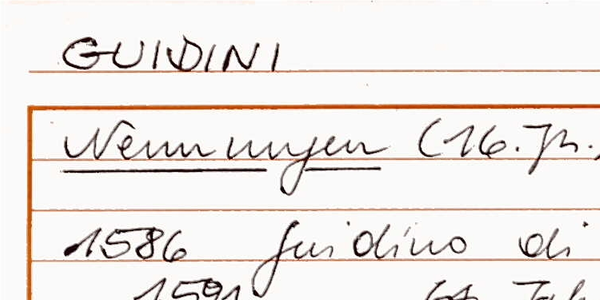 GUIDINI
Nennungen (16. Jh.
1586 guidino di
1591